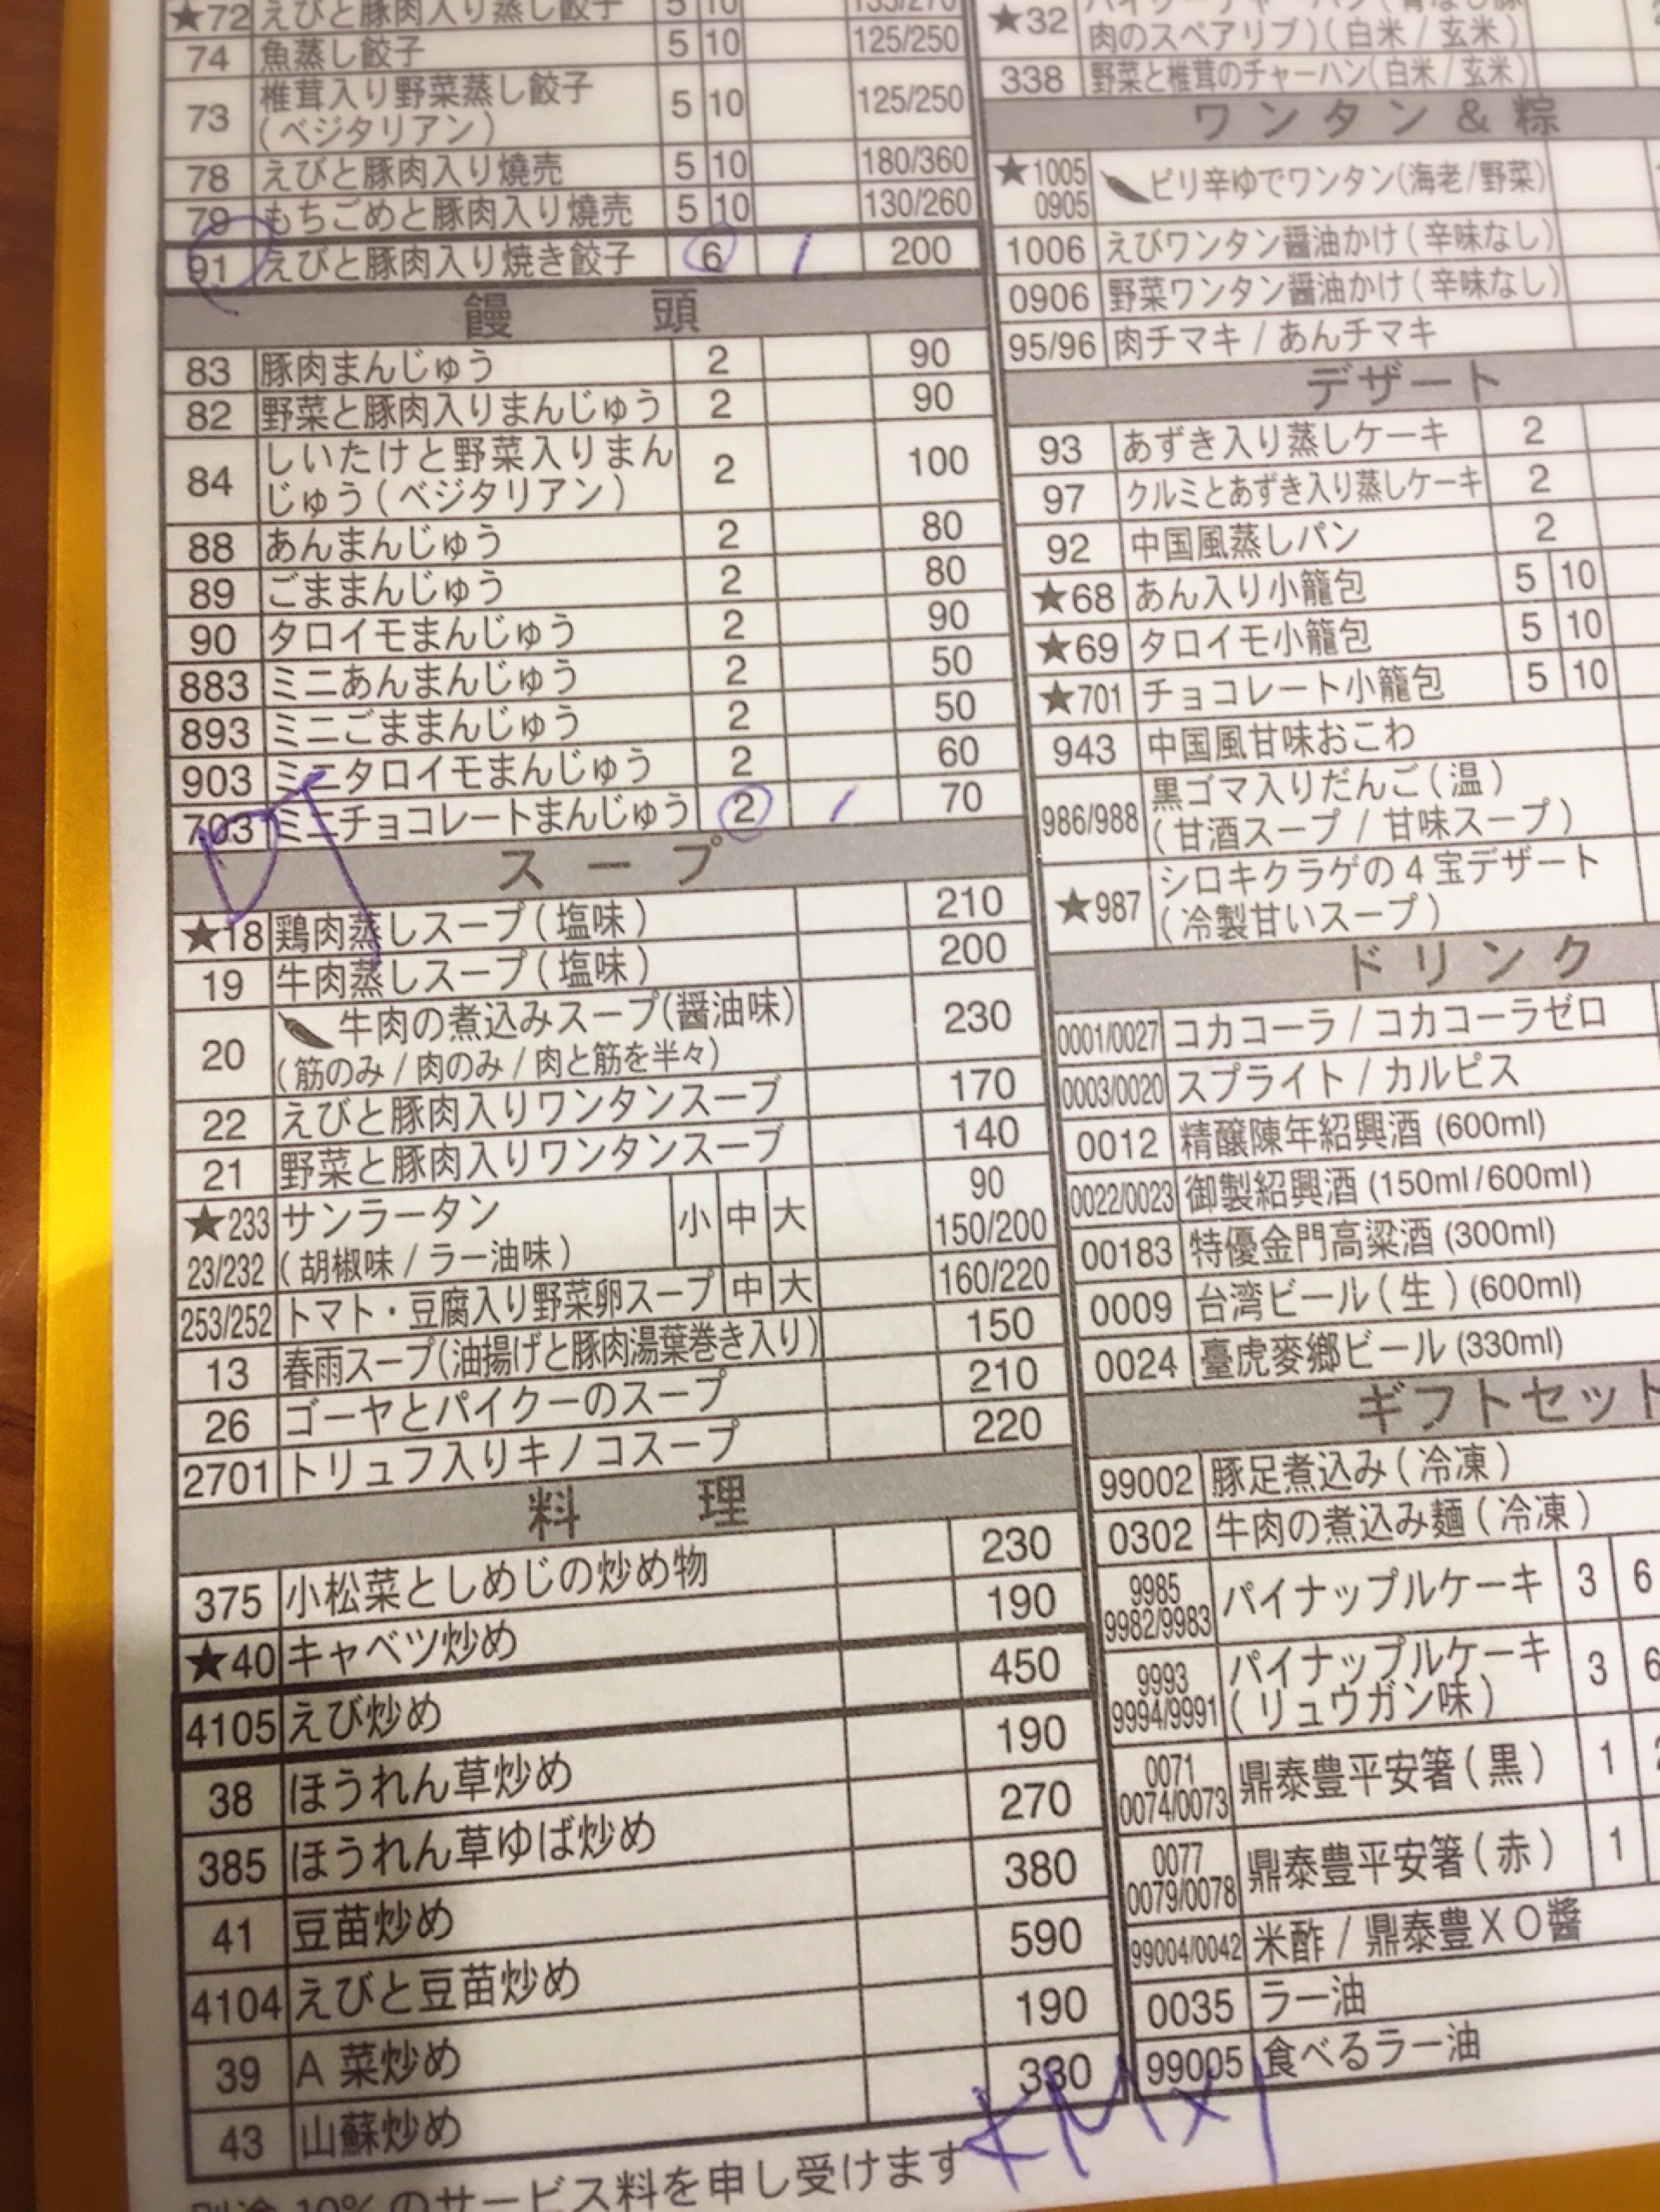 ★72 えびと豚肉入り蒸し餃子 5 10 135/270
74 魚蒸し餃子 5 10 125/250
73 椎茸入り野菜蒸し餃子
(ベジタリアン) 5 10 125/250
78 えびと豚肉入り燒売 5 10 180/360
79 もちごめと豚肉入り燒売 5 10 130/260
91 えびと豚肉入り焼き餃子 6 / 200
饅 頭
83 豚肉まんじゅう 2 90
82 野菜と豚肉入りまんじゅう 2 90
84 しいたけと野菜入りまん
じゅう(ベジタリアン) 2 100
88 あんまんじゅう 2 80
89 ごままんじゅう 2 80
90 タロイモまんじゅう 2 90
883 ミニあんまんじゅう 2 50
893 ミニごままんじゅう 2 50
903 ミニタロイモまんじゅう 2 60
703 ミニチョコレートまんじゅう 2 / 70
叮
スープ
★18 鶏肉蒸しスープ(塩味) 210
19 牛肉蒸しスープ(塩味) 200
20 牛肉の煮込みスープ(醤油味)
(筋のみ / 肉のみ / 肉と筋を半々) 230
22 えびと豚肉入りワンタンスープ 170
21 野菜と豚肉入りワンタンスープ 140
★233 サンラータン 小 中 大 90
23/232 (胡椒味 / ラー油味) 150/200
253/252 トマト・豆腐入り野菜卵スープ 中 大 160/220
13 春雨スープ(油揚げと豚肉湯葉巻き入り) 150
26 ゴーヤとパイクーのスープ 210
2701 トリュフ入りキノコスープ 220
料 理
375 小松菜としめじの炒め物 230
★40 キャベツ炒め 190
4105 えび炒め 450
38 ほうれん草炒め 190
385 ほうれん草ゆば炒め 270
41 豆苗炒め 380
4104 えびと豆苗炒め 590
39 A 菜炒め 190
43 山蘇炒め 330
10% のサービス料を申し受けます
★32 肉のスペアリブ)(白米 / 玄米)
338 野菜と椎茸のチャーハン(白米 / 玄米)
ワンタン & 粽
★1005
0905 ピリ辛ゆでワンタン(海老/野菜)
1006 えびワンタン醤油かけ(辛味なし)
0906 野菜ワンタン醤油かけ(辛味なし)
95/96 肉チマキ / あんチマキ
デザート
93 あずき入り蒸しケーキ 2
97 クルミとあずき入り蒸しケーキ 2
92 中国風蒸しパン 2
★68 あん入り小籠包 5 10
★69 タロイモ小籠包 5 10
★701 チョコレート小籠包 5 10
943 中国風甘味おこわ
986/988 黒ゴマ入りだんご(温)
(甘酒スープ / 甘味スープ)
★987 シロキクラゲの4宝デザート
(冷製甘いスープ)
ドリンク
0001/0027 コカコーラ / コカコーラゼロ
0003/0020 スプライト / カルピス
0012 精釀陳年紹興酒 (600ml)
0022/0023 御製紹興酒 (150ml/600ml)
00183 特優金門高粱酒 (300ml)
0009 台湾ビール(生)(600ml)
0024 臺虎麥鄉ビール (330ml)
ギフトセット
99002 豚足煮込み(冷凍)
0302 牛肉の煮込み麺(冷凍)
9985
9982/9983 パイナップルケーキ 3 6
9993
9994/9991 パイナップルケーキ
(リュウガン味) 3 6
0071
0074/0073 鼎泰豊平安箸(黒) 1 2
0077
0079/0078 鼎泰豊平安箸(赤) 1
99004/0042 米酢 / 鼎泰豊XO醬
0035 ラー油
99005 食べるラー油